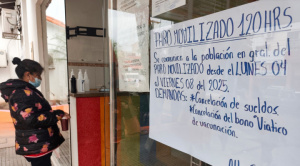 PARO MOVILIZADO 120HRS
Se comunica a la población en gral. del
PARO MOVILIZADO desde el LUNES 04
al VIERNES 08 del 2025.
DEMANDAS: *Cancelación de sueldos
*Cancelación del bono "Viático
de vacunación.